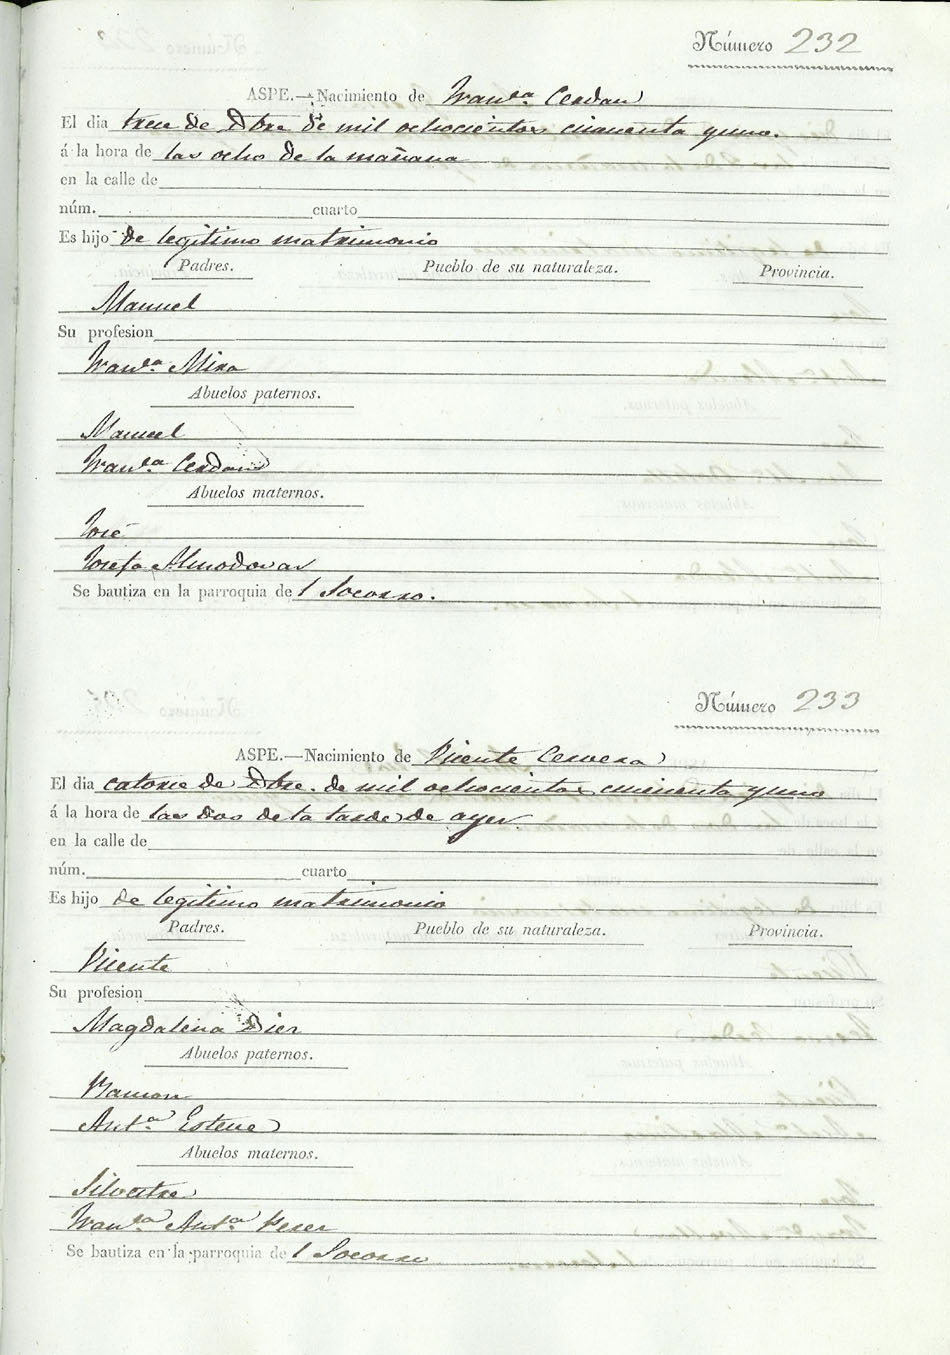 Número 232
ASPE.—Nacimiento de Franca Cerdan
El dia trece de Dbre de mil ochocientos cincuenta y uno.
á la hora de las ocho de la mañana
en la calle de
núm. cuarto
Es hijo de legitimo matrimonio
Padres. Pueblo de su naturaleza. Provincia.
Manuel
Su profesion
Franca Mira
Abuelos paternos.
Manuel
Franca Cerdan
Abuelos maternos.
José
Josefa Almodovar
Se bautiza en la parroquia de l Socorro.
Número 233
ASPE.—Nacimiento de Vicente Cervera
El dia catorce de Dbre. de mil ochocientos cincuenta y uno
á la hora de las dos de la tarde de ayer.
en la calle de
núm. cuarto
Es hijo de legitimo matrimonio
Padres. Pueblo de su naturaleza. Provincia.
Vicente
Su profesion
Magdalena Dier
Abuelos paternos.
Ramon
Anta Esteve
Abuelos maternos.
Silvestre
Franca Anta Perez
Se bautiza en la parroquia de l Socorro